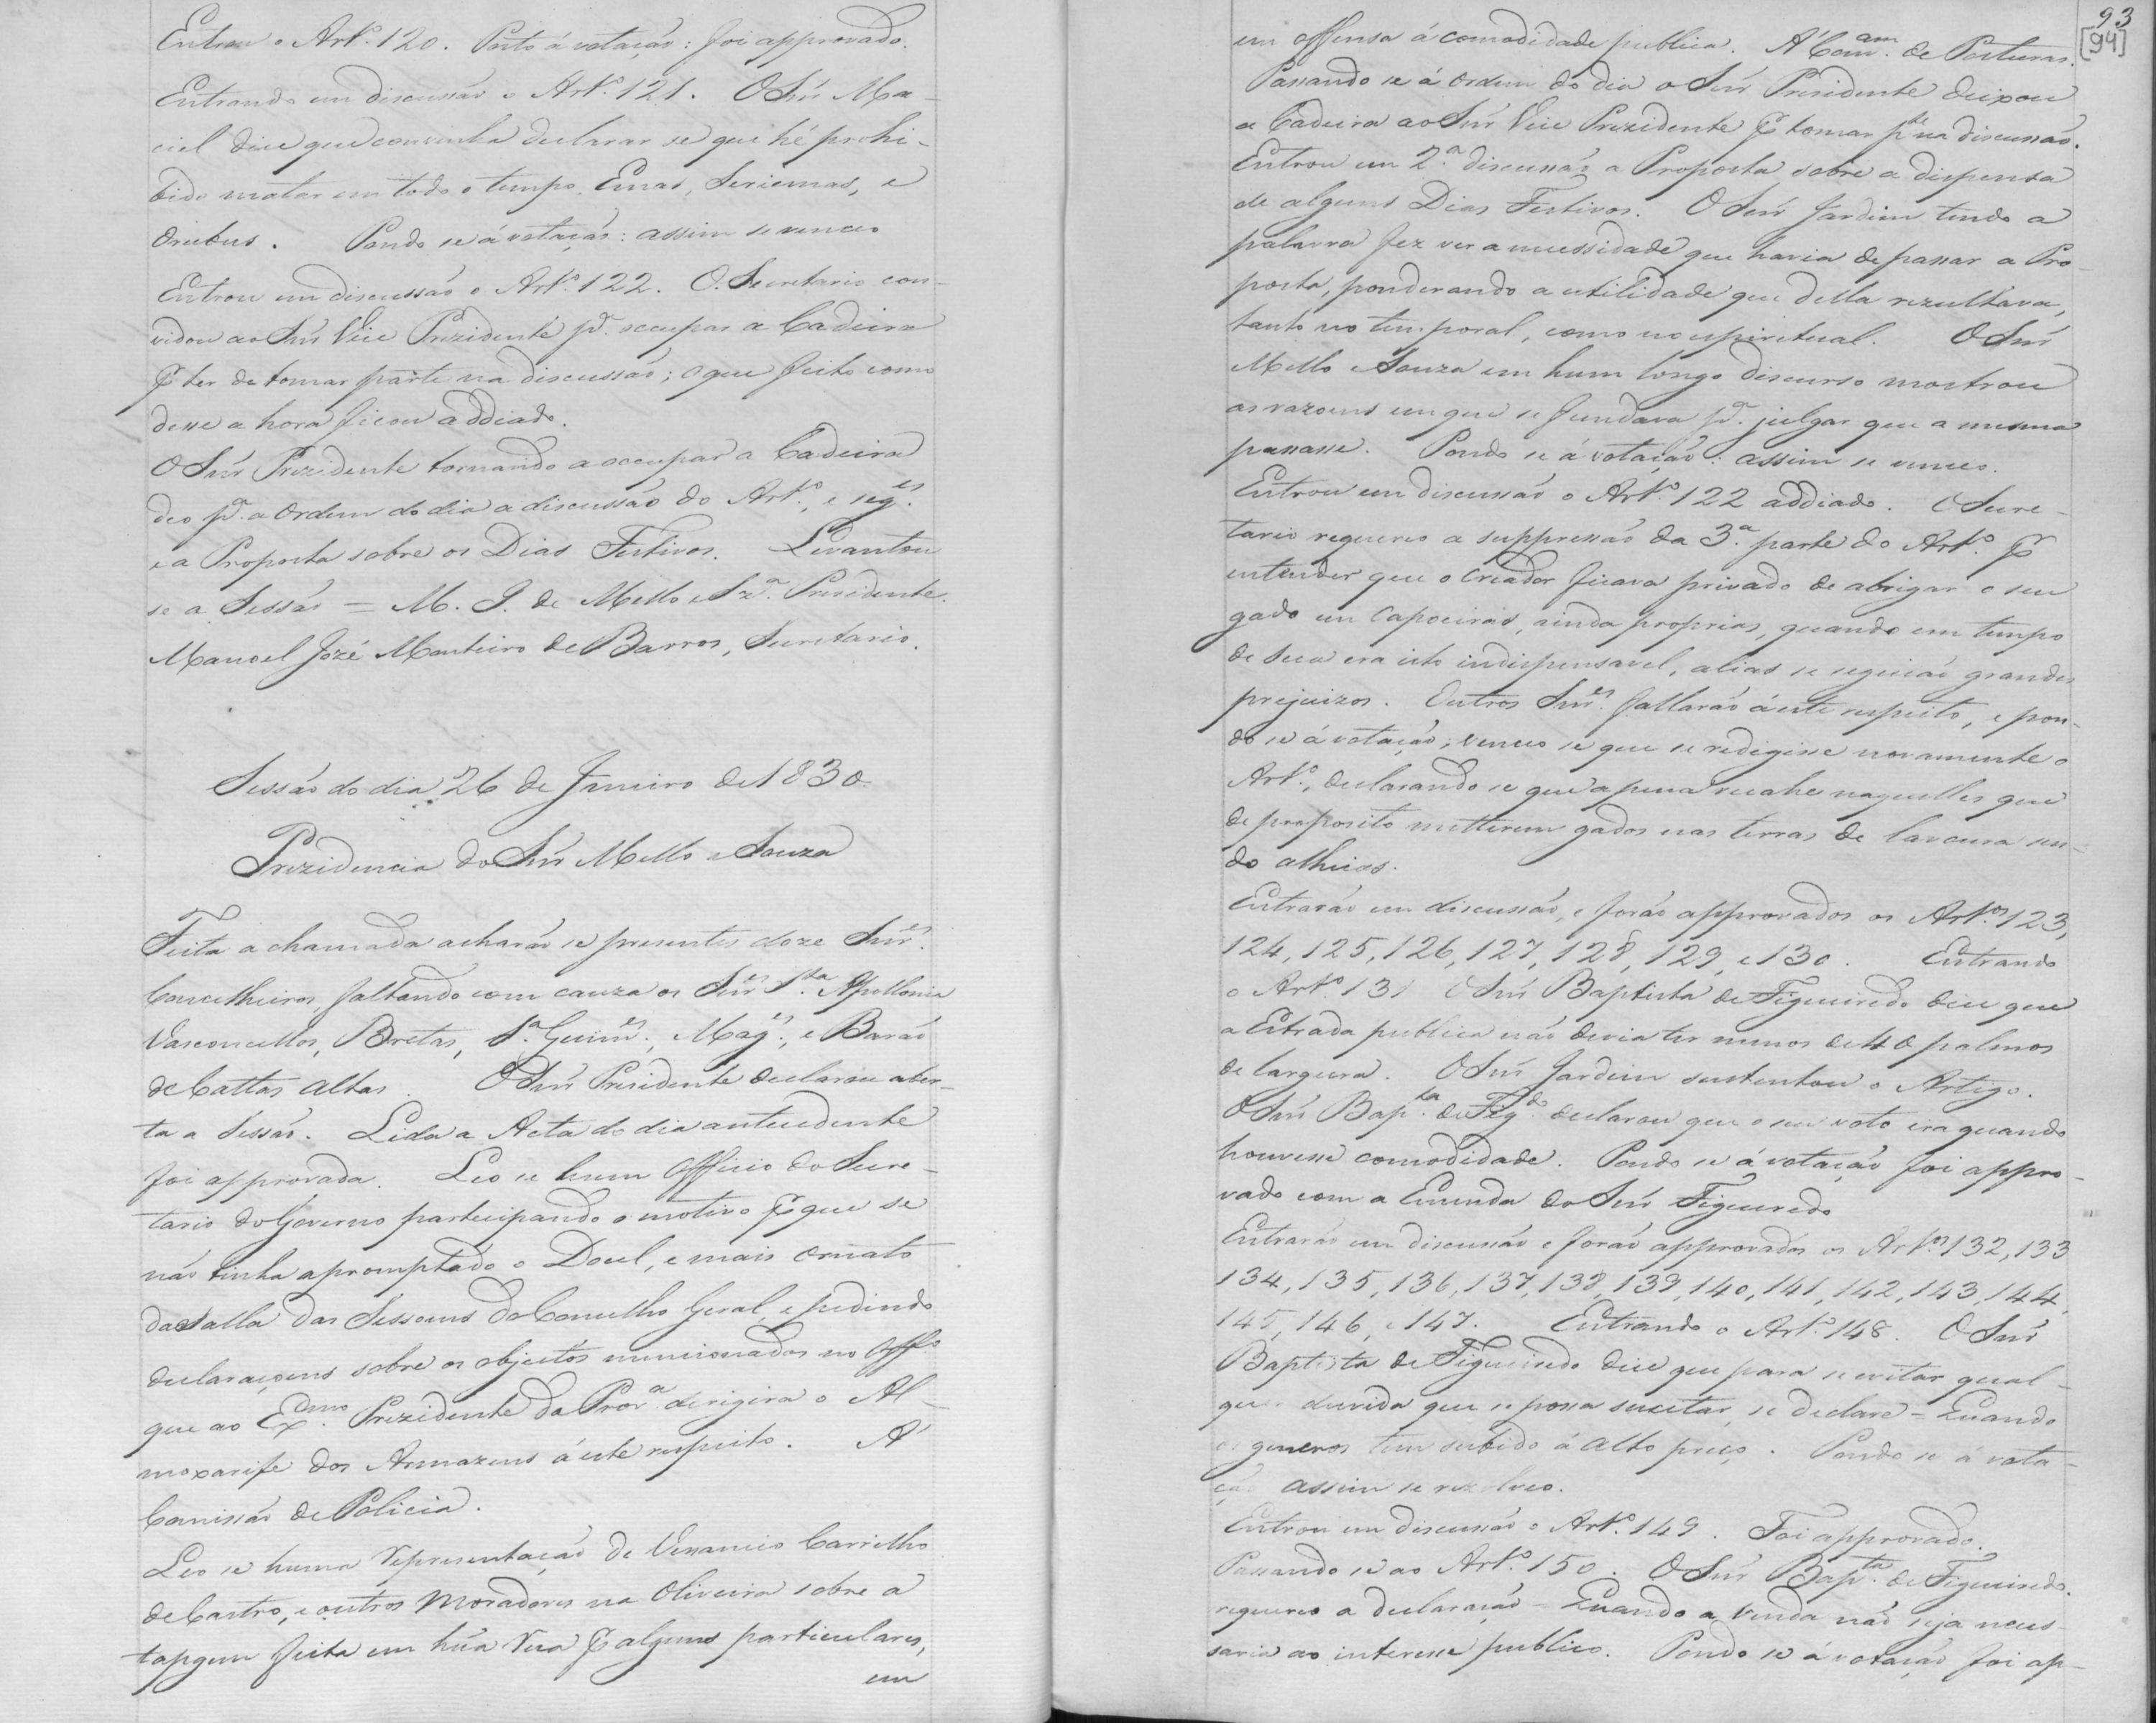 Entrou o Art.º 120. Posto á votação: foi approvado.
Entrando em discussão o Art.º 121. O Snr̃ Ma-
ciel dice que convinha declarar se que hé prohi-
bido matar em todo o tempo Emas, Seriemas, e
Orubus. Pondo se á votação: assim se venceo
Entrou em discussão o Art.º 122. O Secretario con-
vidou ao Snr̃ Vice Prezidente pª. occupar a Cadeira
Pʳ ter de tomar parte na discussão; o que feito como
desse a hora ficou addiado.
O Snr̃ Prezidente tornando a occupar a Cadeira
deo pª. a Ordem do dia a discussão do Art.º, e seg.es
e a Proposta sobre os Dias Festivos. Levantou
se a Sessão = M. I. de Mello e Sz.ª Prezidente.
Manoel Jozé Monteiro de Barros, Secretario.
Sessão do dia 26 de Janeiro de 1830
Prezidencia do Snr̃ Mello e Souza
Feita a chamada acharão se presentes doze Snr.es
Concelheiros, faltando com cauza os Snr.es S.ta Apollonia
Vasconcellos, Bretas, S.ª Guim.es, Mag.es, e Barão
de Cattas Altas. O Snr̃ Presidente declarou aber-
ta a Sessão. Lida a Acta do dia antecedente
foi approvada. Leo se hum Officio do Secre-
tario do Governo participando o motivo pʳ que se
não tinha apromptado o Docel, e mais ornato
da Salla das Sessoens do Concelho Geral, e pedindo
declaraçoens sobre os objectos mencionados no Off.º
que ao Ex.mo Prezidente da Prov.ª dirigira o Al-
moxarife dos Armazens á este respeito. A'
Comissão de Policia.
Leo se huma representação de Venancio Carrilho
de Castro, e outros Moradores na Oliveira sobre a
tapgem feita em hũa Rua pʳ alguns particulares,
em
93
[94]
em offensa á comodidade publica. A' Com.am de Posturas.
Passando se á Ordem do dia o Snr̃ Presidente deixou
a Cadeira ao Snr̃ Vice Prezidente pʳ tomar p.te na discussão.
Entrou em 2.ª discussão a Proposta sobre a dispensa
de alguns Dias Festivos. O Snr̃ Jardim tendo a
palavra fez ver a necessidade que havia de passar a Pro-
posta, ponderando a utilidade que della rezultava,
tanto no temporal, como no espiritual. O Snr̃
Mello e Souza em hum longo discurso mostrou
as razoens em que se fundava pª. julgar que a mesma
passasse. Pondo se á votação: assim se venceo.
Entrou em discussão o Art.º 122 addiado. O Secre-
tario requereo a suppressão da 3.ª parte do Art.º pʳ
entender que o Creador ficava privado de abrigar o seu
gado em Capoeiras, ainda proprias, quando em tempo
de seca era isto indispensavel, alias se seguião grandes
prejuizos. Outros Snr.es fallarão á este respeito, e pon-
do se á votação; venceo se que se redigisse novamente o
Art.º, declarando se que a pena recahe naquelles que
de proposito metterem gados nas terras de lavoura sen-
do alheias.
Entrarão em discussão, e forão approvados os Art.os 123,
124, 125, 126, 127, 128, 129, e 130. Entrando
o Art.º 131 O Snr̃ Baptista de Figueiredo dice que
a Estrada publica não devia ter menos de 40 palmos
de largura. O Snr̃ Jardim sustentou o Artigo.
O Snr̃ Bap.ta de Fig.do declarou que o seu voto era quando
houvesse comodidade. Pondo se á votação foi appro-
vado com a Emenda do Snr̃ Figueredo
Entrarão em discussão e forão approvados os Art.os 132, 133
134, 135, 136, 137, 138, 139, 140, 141, 142, 143, 144,
145, 146, e 147. Entrando o Art.º 148. O Snr̃
Baptista de Figueiredo dice que para se evitar qual-
quer duvida que se possa sucitar, se declare = Quando
os generos tem subido á alto preço. Pondo se á vota-
ção assim se rezolveo.
Entrou em discussão o Art.º 149. Foi approvado.
Passando se ao Art.º 150. O Snr̃ Bap.ta de Figueiredo.
requereo a declaração = Quando a venda não seja neces-
saria ao interesse publico. Pondo se á votação foi ap-